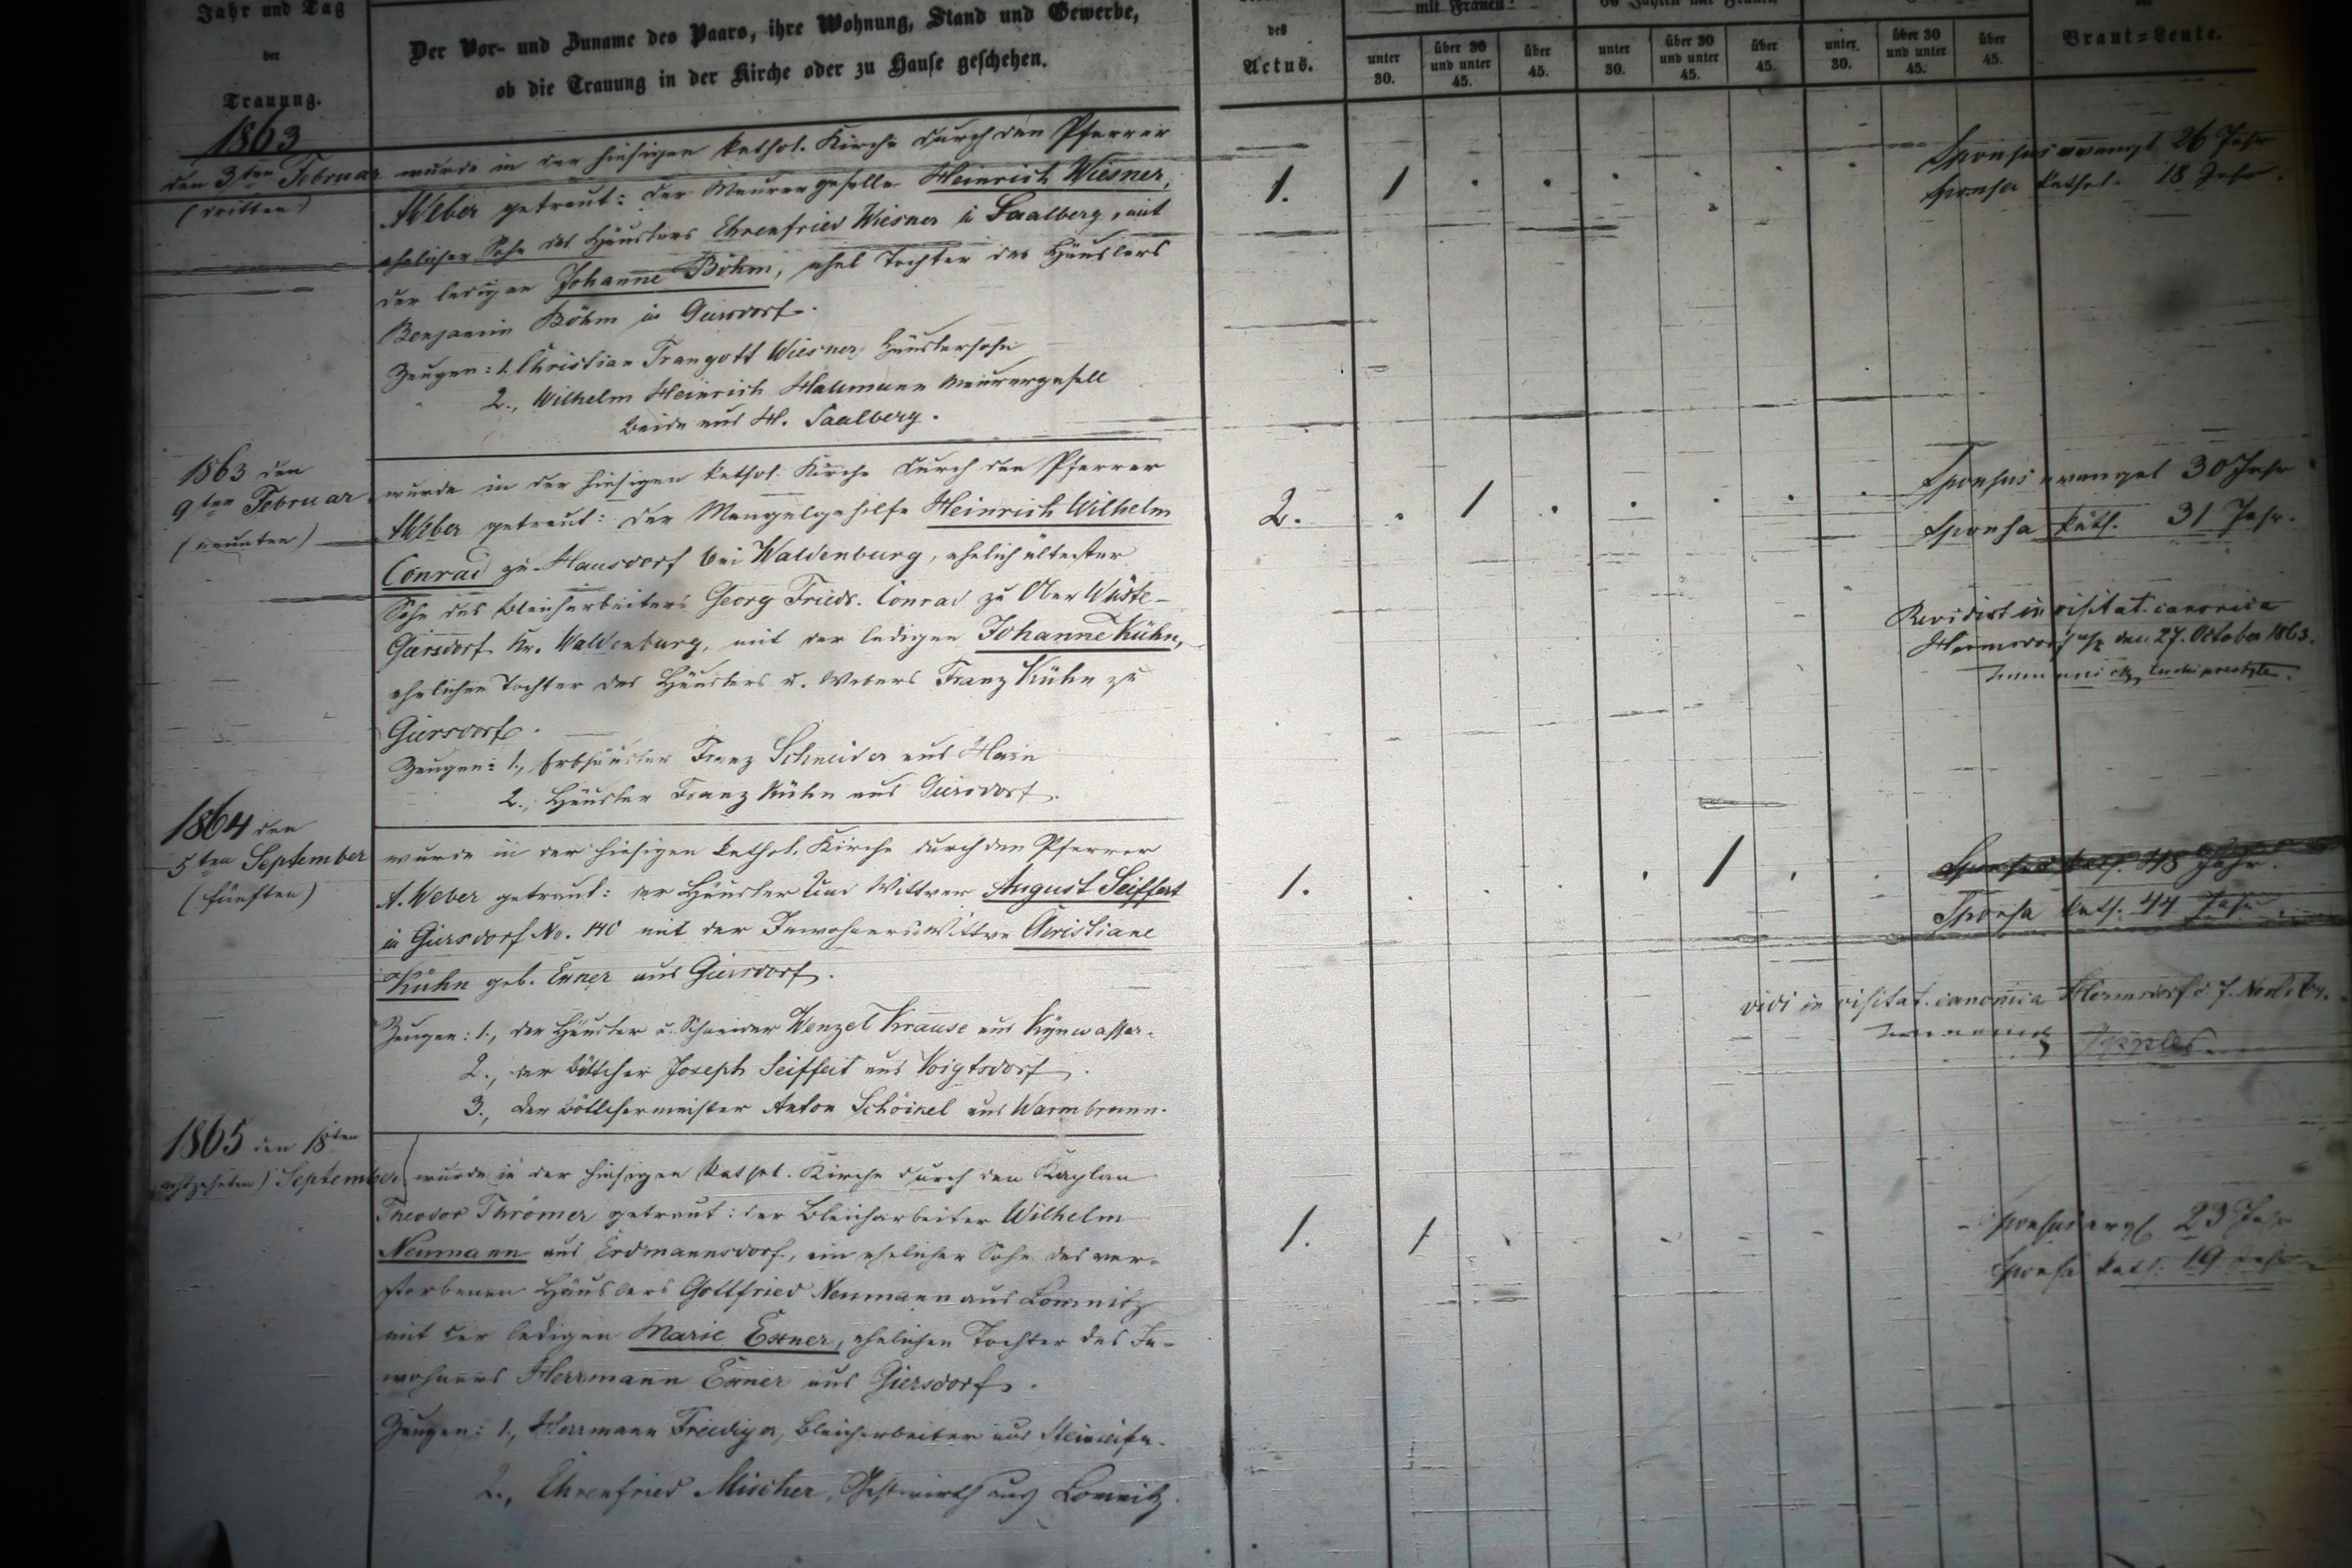 Jahr und Tag
der
Trauung.
Der Vor- und Zuname des Paars, ihre Wohnung, Stand und Gewerbe,
ob die Trauung in der Kirche oder zu Hause geschehen.
des
Actus.
mit Frauen:
unter 30.
über 30 und unter 45.
über 45.
unter 30.
über 30 und unter 45.
über 45.
unter 30.
über 30 und unter 45.
über 45.
der
Braut-Leute.
1863
den 3ten Februar
(dritten)
wurde in der hiesigen kathol. Kirche durch den Pfarrer
A Weber getraut: der Maurergeselle Heinrich Wiesner,
ehelicher Sohn des Häuslers Ehrenfried Wiesner in Saalberg, mit
der ledigen Johanne Böhm, ehel Tochter des Häuslers
Benjamin Böhm in Giersdorf.
Zeugen: 1. Christian Traugott Wiesner, Häuslersohn
2., Wilhelm Heinrich Hallmann Maurergesell
beide aus H. Saalberg.
1.
1
Sponsus evangl. 26 Jahr
Sponsa kathol. 18 Jahr.
1863 den
9ten Februar
(neunten)
wurde in der hiesigen kathol. Kirche durch den Pfarrer
A Weber getraut: der Mangelgehilfe Heinrich Wilhelm
Conrad zu Hausdorf bei Waldenburg, ehelich ältester
Sohn des Bleicharbeiters Georg Friedr. Conrad zu Ober Wüste-
Giersdorf Kr. Waldenburg, mit der ledigen Johanne Kühn,
ehelichen Tochter des Häuslers u. Webers Franz Kühn zu
Giersdorf.
Zeugen: 1., Erbhäusler Franz Schneider aus Hain
2., Häusler Franz Kühn aus Giersdorf.
2.
1
Sponsus evangel 30 Jahr
Sponsa kath. 31 Jahr.
Revidirt in visitat. canonica
Hermsdorf den 27. October 1863.
1864 den
5ten September
(fünften)
wurde in der hiesigen kathol. Kirche durch den Pfarrer
A. Weber getraut: der Häusler und Wittwer August Seiffert
in Giersdorf No. 140 mit der Inwohners Wittwe Christiane
Kühn geb. Exner aus Giersdorf.
Zeugen: 1., der Häusler u. Schneider Wenzel Krause aus Kynwasser.
2., der Böttcher Joseph Seiffert aus Voigtsdorf.
3., der Böttchermeister Anton Schöinel aus Warmbrunn.
1.
1
48 Jahr.
Sponsa kath. 44 Jahr
vidi in visitat. canonica Hermsdorf d. 7.
1865 den 18ten
achtzehnten) September
wurde in der hiesigen kathol. Kirche durch den Kaplan
Theodor Thrömer getraut: der Bleicharbeiter Wilhelm
Neumann aus Erdmannsdorf, ein ehelicher Sohn des ver-
storbenen Häuslers Gottfried Neumann aus Lomnitz
mit der ledigen Marie Exner, ehelichen Tochter des In-
wohners Herrmann Exner aus Giersdorf.
Zeugen: 1., Herrmann Freudiger, Bleicharbeiter aus
2., Ehrenfried Mischer, Gastwirth aus Lomnitz.
1.
1
Sponsus evgl 23 Jahr
Sponsa kath. 19 Jahr